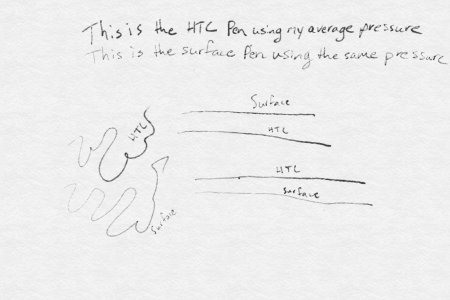 This is the HTC Pen using my average pressure
This is the surface Pen using the same pressure
Surface
HTC
HTC
HTC
Surface
Surface